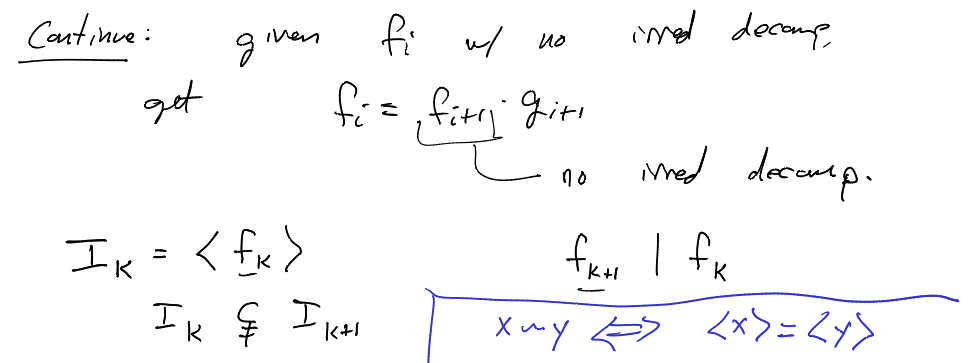 Continue: given fᵢ w/ no irred decomp,
get fᵢ = fᵢ₊₁ · gᵢ₊₁
no irred decomp.
I_k = ⟨f_k⟩ f_{k+1} | f_k
I_k ⊊ I_{k+1} x ~ y ⟺ ⟨x⟩ = ⟨y⟩